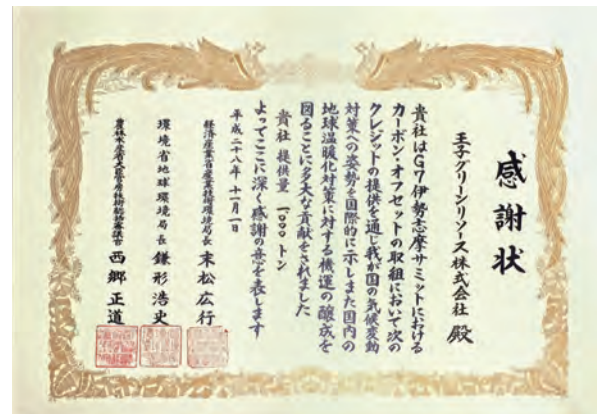 感謝状
王子グリーンリソース株式会社 殿
貴社はG7伊勢志摩サミットにおける
カーボン・オフセットの取組において次の
クレジットの提供を通じ我が国の気候変動
対策への姿勢を国際的に示しまた国内の
地球温暖化対策に対する機運の醸成を
図ることに多大な貢献をされました
貴社 提供量 一〇〇〇トン
よってここに深く感謝の意を表します
平成二十八年 十一月一日
経済産業省産業技術環境局長 末松広行
環境省地球環境局長 鎌形浩史
農林水産省大臣官房技術総括審議官 西郷正道